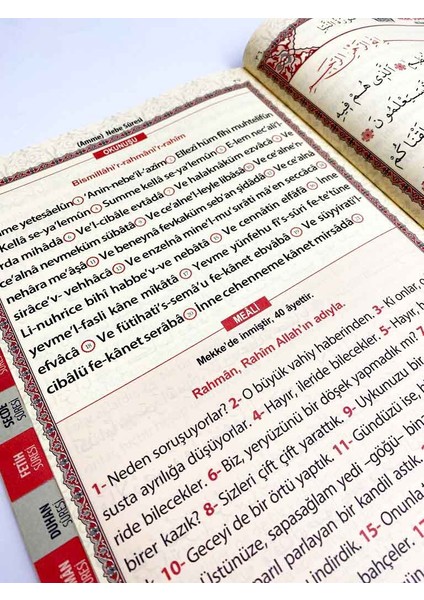 (Amme) Nebe Sûresi
OKUNUŞU
Bismillâhi'r-rahmâni'r-rahîm
me yetesâelûn 1 'Anin-nebe'i-l-'azîm 2 Ellezî hüm fîhi muhtelifûn
Kellâ se-ya'lemûn 4 Summe kellâ se-ya'lemûn 5 E-lem nec'ali'l
arda mihâdâ 6 Ve'l-cibâle evtâdâ 7 Ve halaknâküm ezvâcâ 8 Ve
ce'alnâ nevmeküm sübâtâ 9 Ve ce'alne'l-leyle libâsâ 10 Ve ce'alne'n
nehâra me'âşâ 11 Ve beneynâ fevkaküm seb'an şidâdâ 12 Ve ce'alnâ
sirâce'v-vehhâcâ 13 Ve enzelnâ mine'l-mu'sırâti mâ'en seccâcâ
Li-nuhrice bihî habbe'v-ve nebâtâ 15 Ve cennâtin elfâfâ 16 İnne
yevme'l-fasli kâne mîkâtâ 17 Yevme yünfehu fi's-sûri fe-te'tûne
efvâcâ 18 Ve fütihati's-semâ'u fe-kânet ebvâbâ 19 Ve süyyirati'l-
cibâlü fe-kânet serâbâ 20 İnne cehenneme kânet mirsâdâ
MEALİ
Mekke'de inmiştir. 40 âyettir.
Rahmân, Rahîm Allah'ın adıyla.
1- Neden soruşuyorlar? 2- O büyük vahiy haberinden. 3- Ki onlar, o
susta ayrılığa düşüyorlar. 4- Hayır, ileride bilecekler. 5- Hayır,
ride bilecekler. 6- Biz, yeryüzünü bir döşek yapmadık mı?
birer kazık? 8- Sizleri çift çift yarattık. 9- Uykunuzu bir
10- Geceyi de bir örtü yaptık. 11- Gündüzü ise,
Üstünüze, sapasağlam yedi -göğü- bin
parıl parlayan bir kandil astık
indirdik. 15- Onunla
bahçeler. 17-
SECDE
SÛRESİ
FETİH
SÛRESİ
DUHAN
SÛRESİ
SÛRESİ
الَّذِي هُمْ فِيهِ